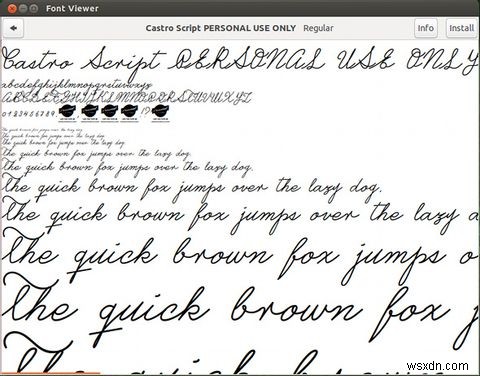 Font Viewer
Castro Script PERSONAL USE ONLY Regular
Info
Install
Castro Script PERSONAL USE ONLY
abcdefghijklmnopqrstuvwxyz
ABCDEFGHIJKLMNOPQRSTUVWXYZ
0123456789. !?
The quick brown fox jumps over the lazy dog.
The quick brown fox jumps over the lazy dog.
The quick brown fox jumps over the lazy dog.
The quick brown fox jumps over the lazy dog.
The quick brown fox jumps over the lazy dog.
The quick brown fox jumps over the lazy dog.
The quick brown fox jumps over the lazy d
The quick brown fox jumps o
The quick brown fox j
wsxdn.com